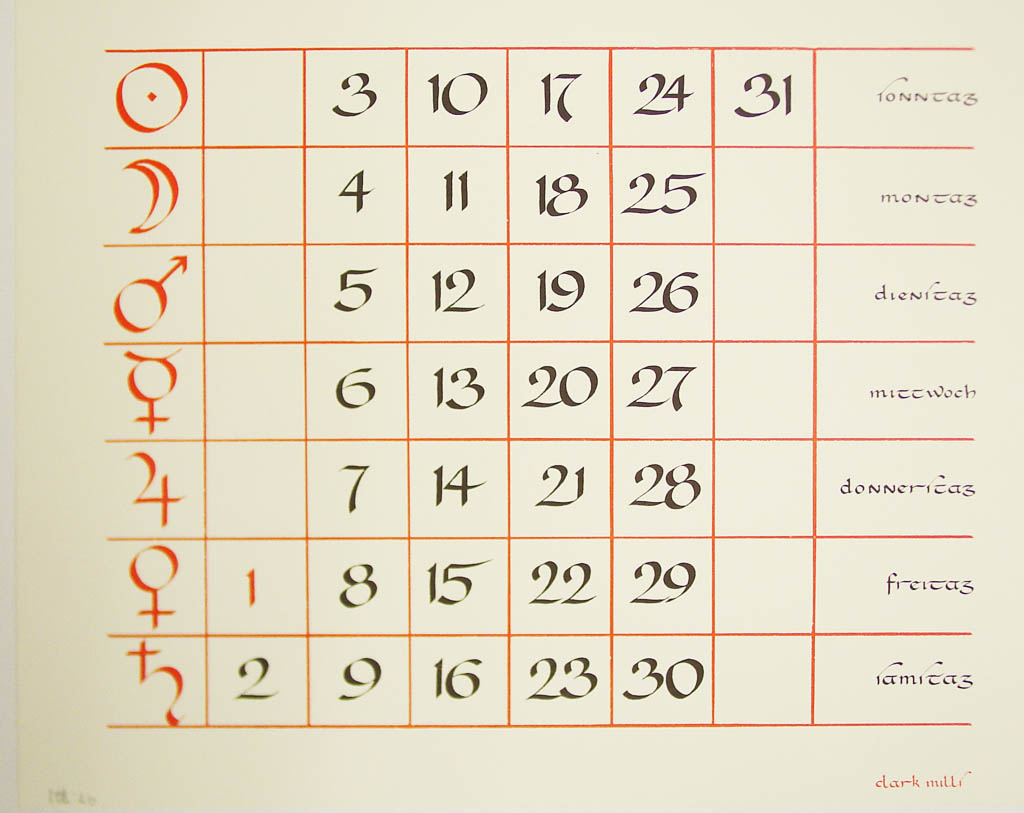 ☉ 3 10 17 24 31 sonntag
☽ 4 11 18 25 montag
♂ 5 12 19 26 dienstag
☿ 6 13 20 27 mittwoch
♃ 7 14 21 28 donnerstag
♀ 1 8 15 22 29 freitag
♄ 2 9 16 23 30 samstag
clark mills